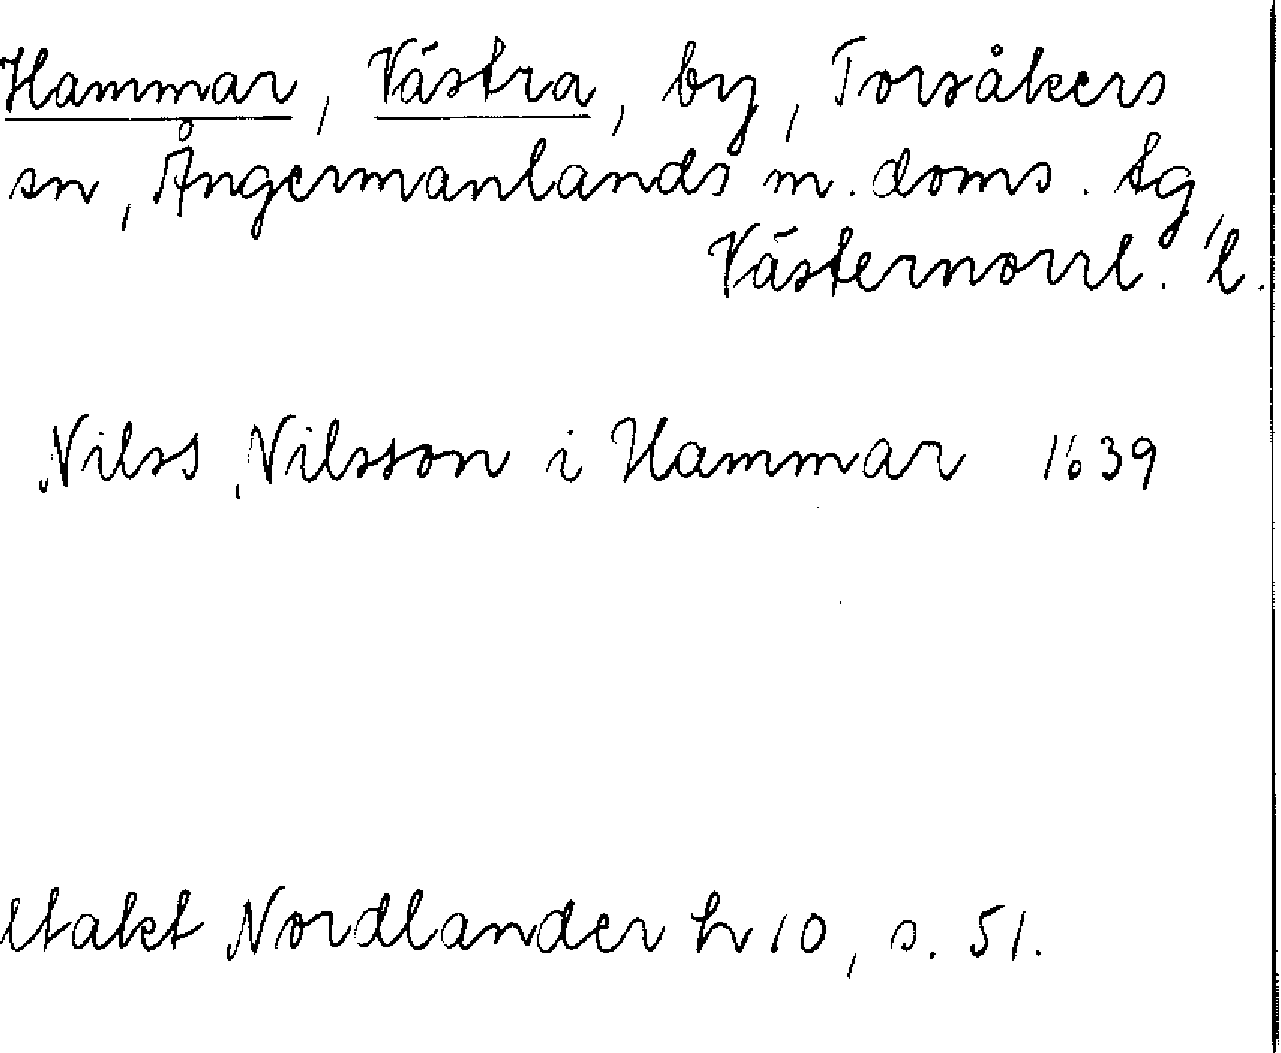 Hammar, Västra, by, Torsåkers
sn, Ångermanlands m. doms. tg,
Västernorrl. l.
Nilss Nilsson i Hammar 1639
Utakt Nordlander h 10, s. 51.